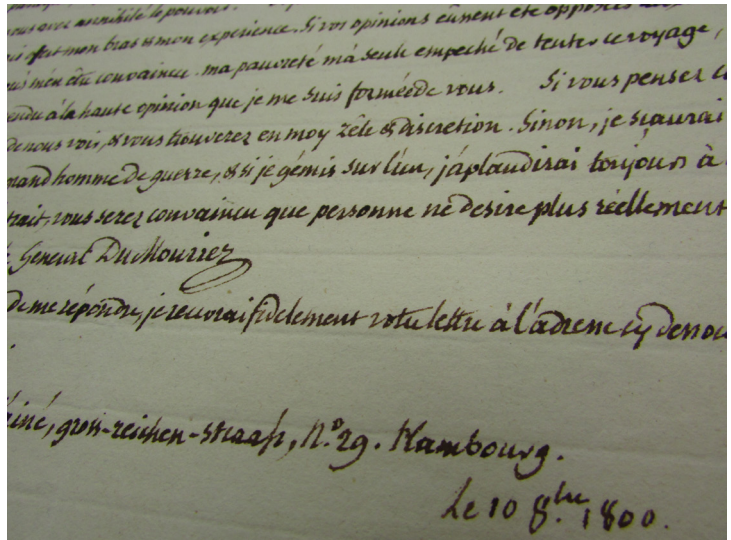 avec annihilé le pouvoir.
mon bras et mon experience. Si vos opinions eussent eté opposées
convaincu. ma pauvreté m'a seule empeché de tenter ce voyage,
à la haute opinion que je me suis formée de vous. Si vous pensez
de nous voir, & vous trouverez en moy zêle & discretion. Sinon, je sçaurai
homme de guerre, & si je gémis sur l'un, j'aplaudirai toujours à
trait, vous serez convaincu que personne ne desire plus réellement
General DuMouriez
de me répondre, je recevrai fidelement votre lettre à l'adresse cy dessou
ainé, gross-reichen-straass, N.o 29. Hambourg.
Le 10 8.bre 1800.